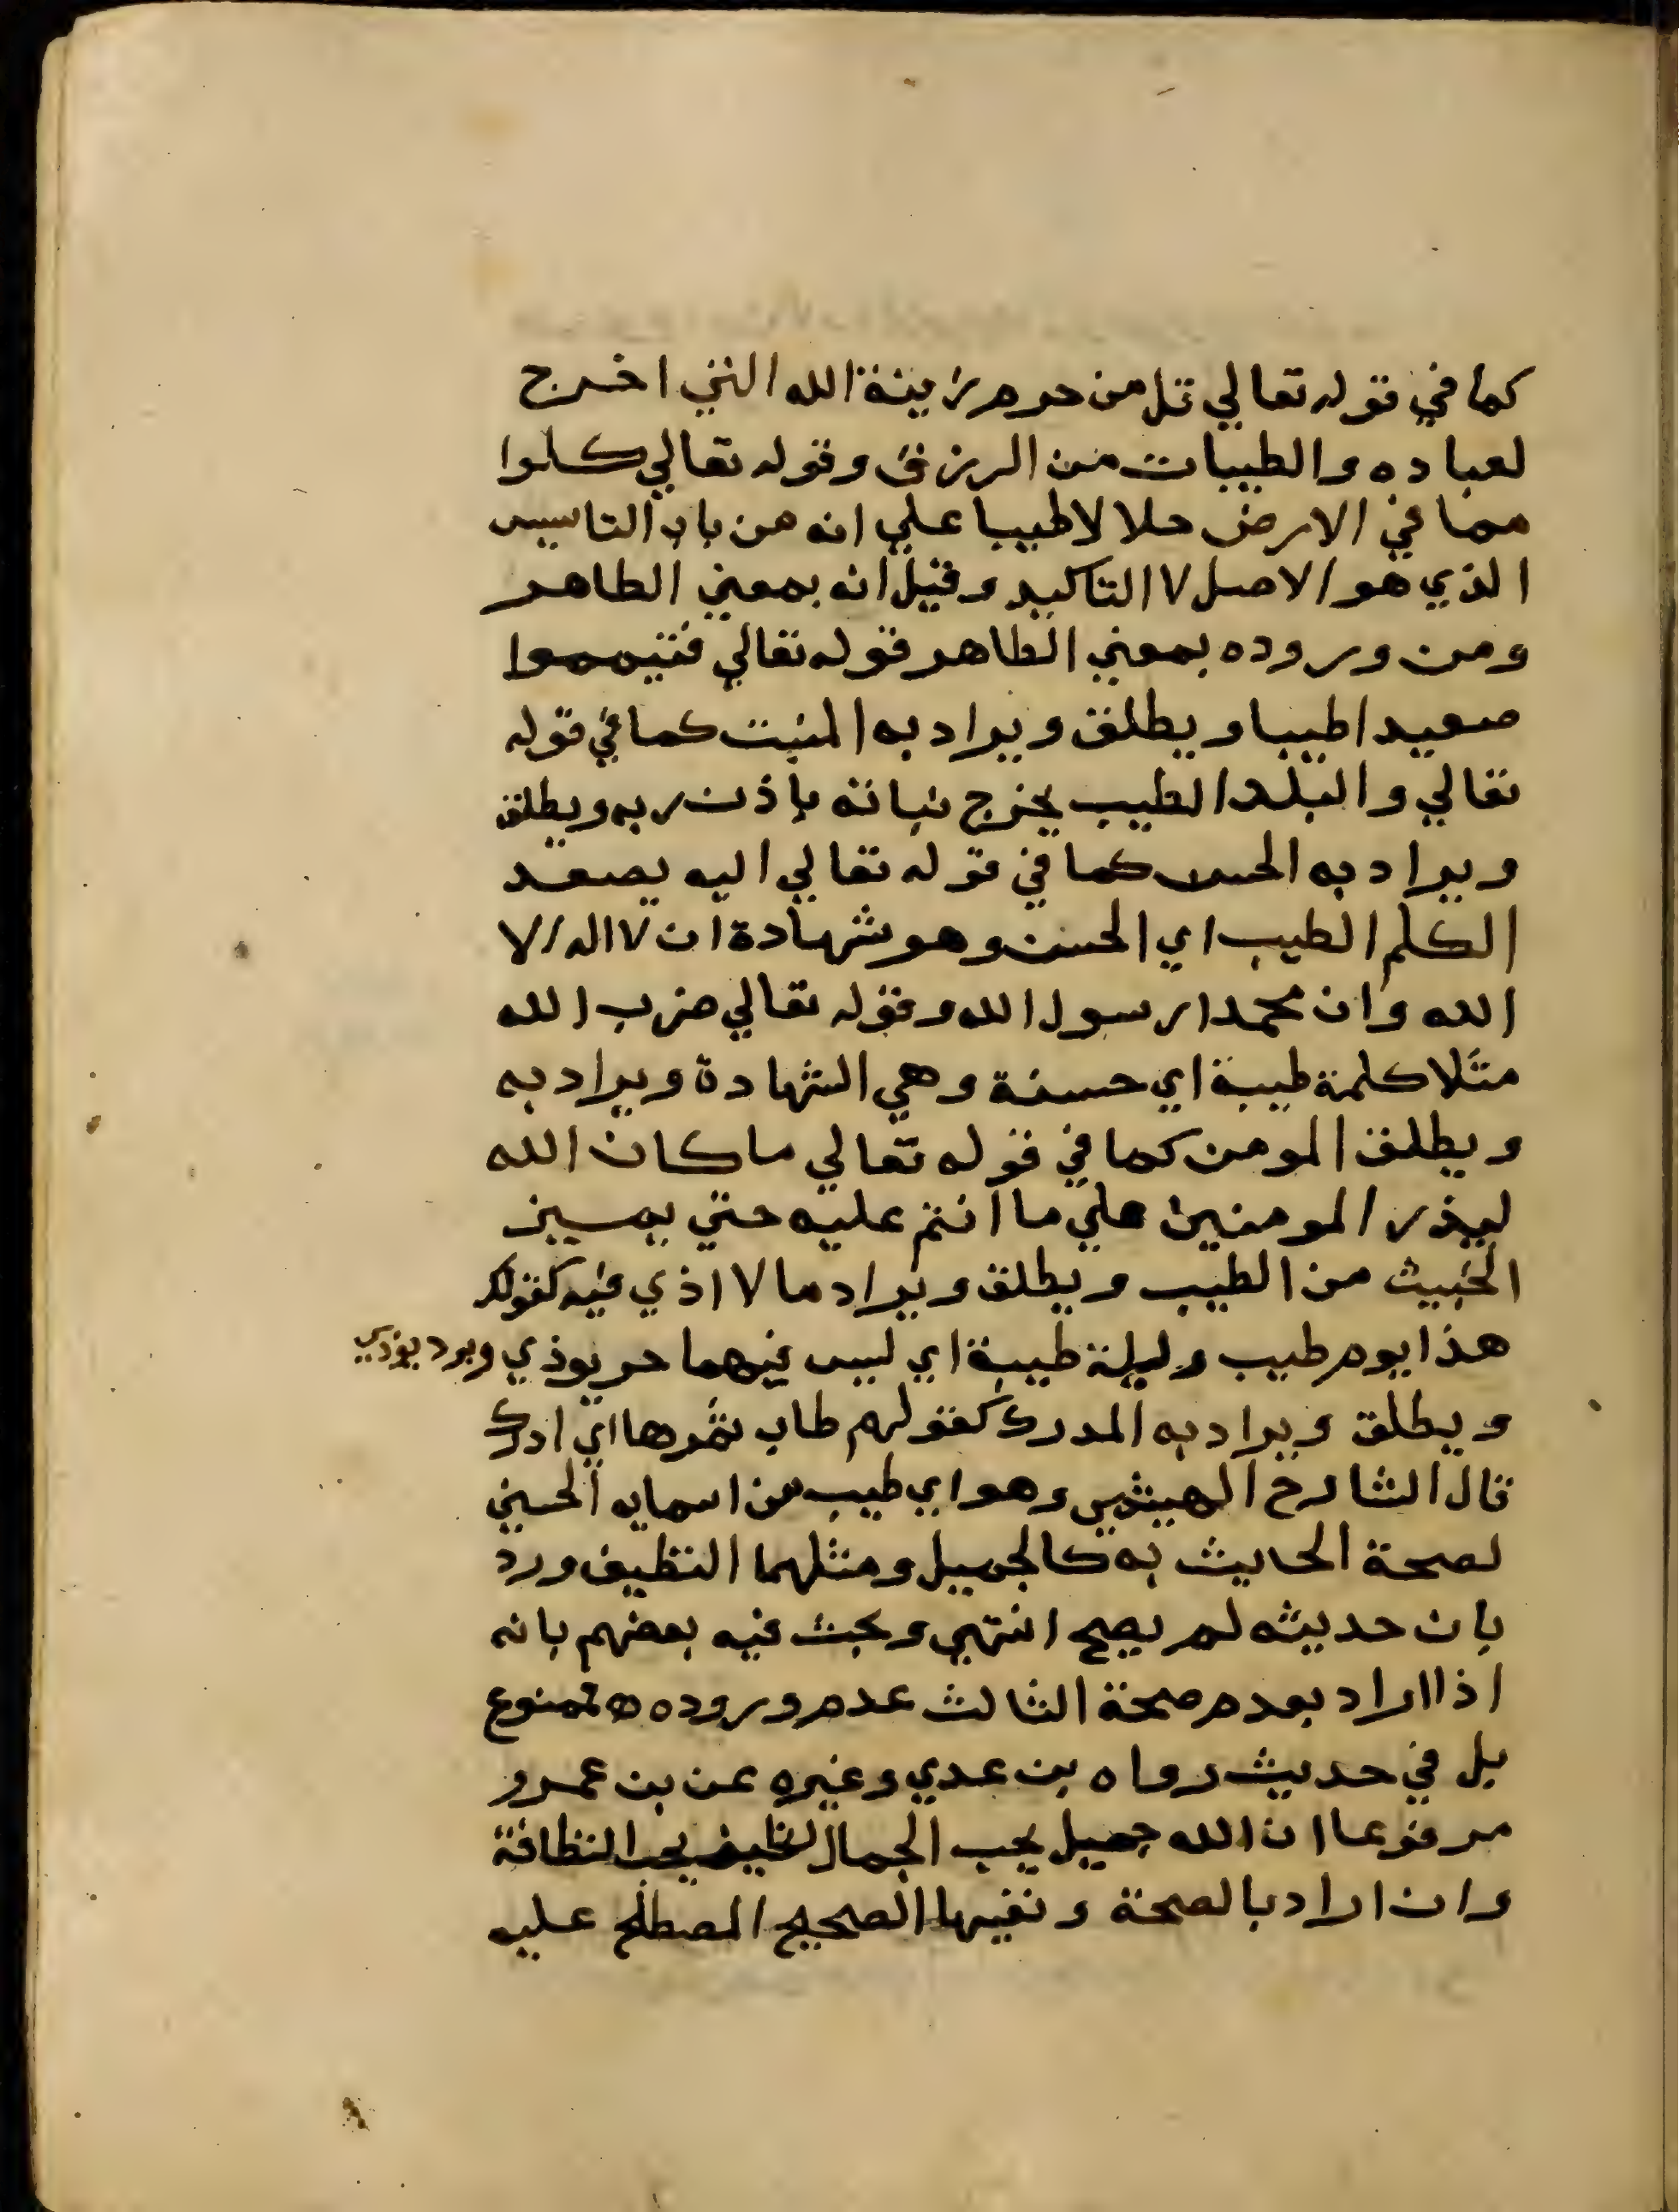 كما في قوله تعالي قل من حرم زينة الله التي اخرج
لعباده والطيبات من الرزق وقوله تعالي كلوا
مما في الارض حلالا طيبا علي انه من باب التاسيس
الذي هو الاصل لا التاكيد وقيل انه بمعني الطاهر
ومن وروده بمعني الطاهر قوله تعالي فتيمموا
صعيدا طيبا ويطلق ويراد به المنبت كما في قوله
تعالي والبلد الطيب يخرج نباته باذن ربه ويطلق
ويراد به الحسن كما في قوله تعالي اليه يصعد
الكلم الطيب اي الحسن وهو شهادة ان لا اله الا
الله وان محمدا رسول الله وقوله تعالي ضرب الله
مثلا كلمة طيبة اي حسنة وهي الشهادة ويراد به
ويطلق المومن كما في قوله تعالي ما كان الله
ليذر المومنين علي ما انتم عليه حتي يميز
الخبيث من الطيب ويطلق ويراد ما لا اذي فيه كقولك
هذا يوم طيب وليلة طيبة اي ليس فيهما حر يوذي وبرد يوذي
ويطلق ويراد به المدرك كقولهم طاب ثمرها اي ادرك
قال الشارح الهيثمي وهو اي طيب من اسمايه الحسني
لصحة الحديث به كالجميل ومثلهما النظيف ورد
بان حديثه لم يصح انتهي وبحث فيه بعضهم بانه
اذا اراد بعدم صحة الثالث عدم وروده فممنوع
بل في حديث رواه بن عدي وغيره عن بن عمرو
مرفوعا ان الله جميل يحب الجمال نظيف يحب النظافة
وان اراد بالصحة ونفيها الصحيح المصطلح عليه